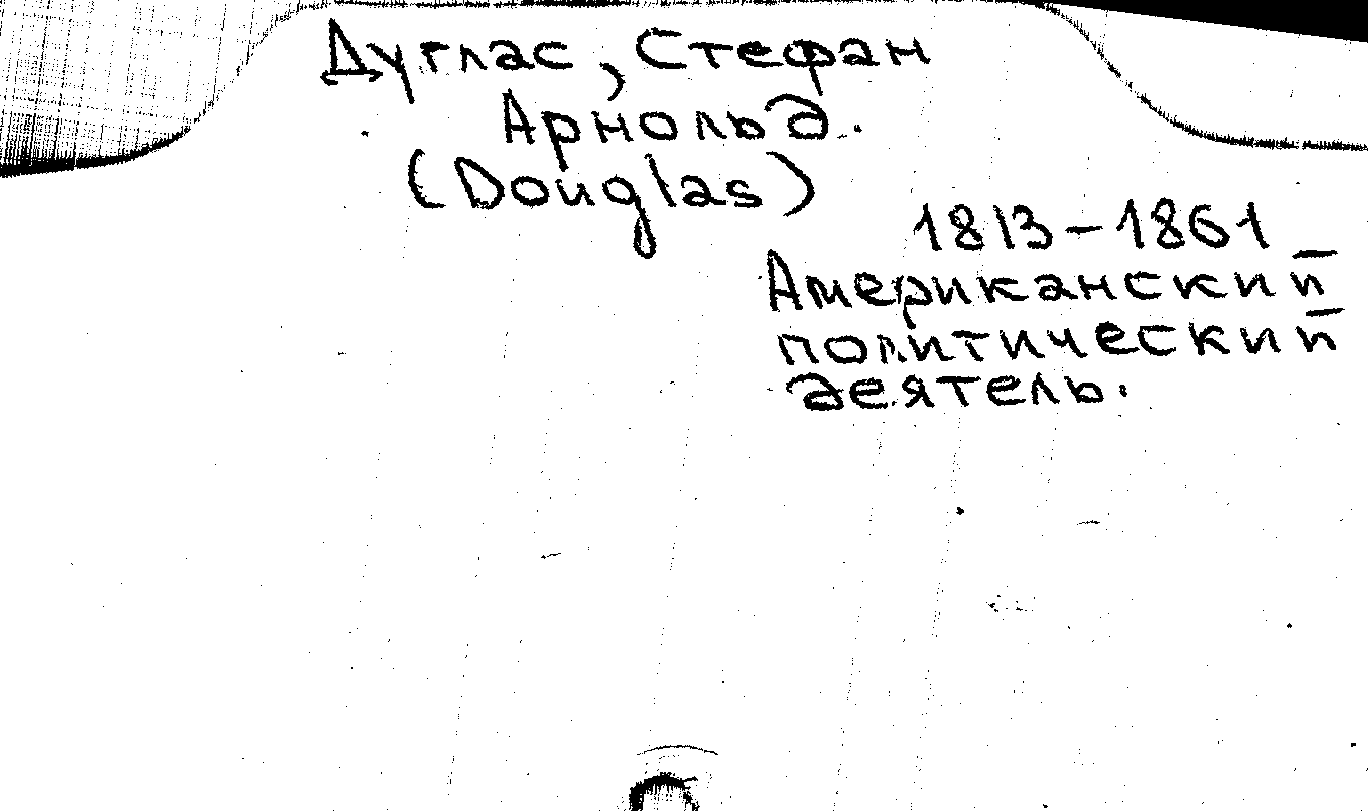 Дуглас, Стефан
Арнольд.
(Douglas)
1813-1861
Американский
политический
деятель.